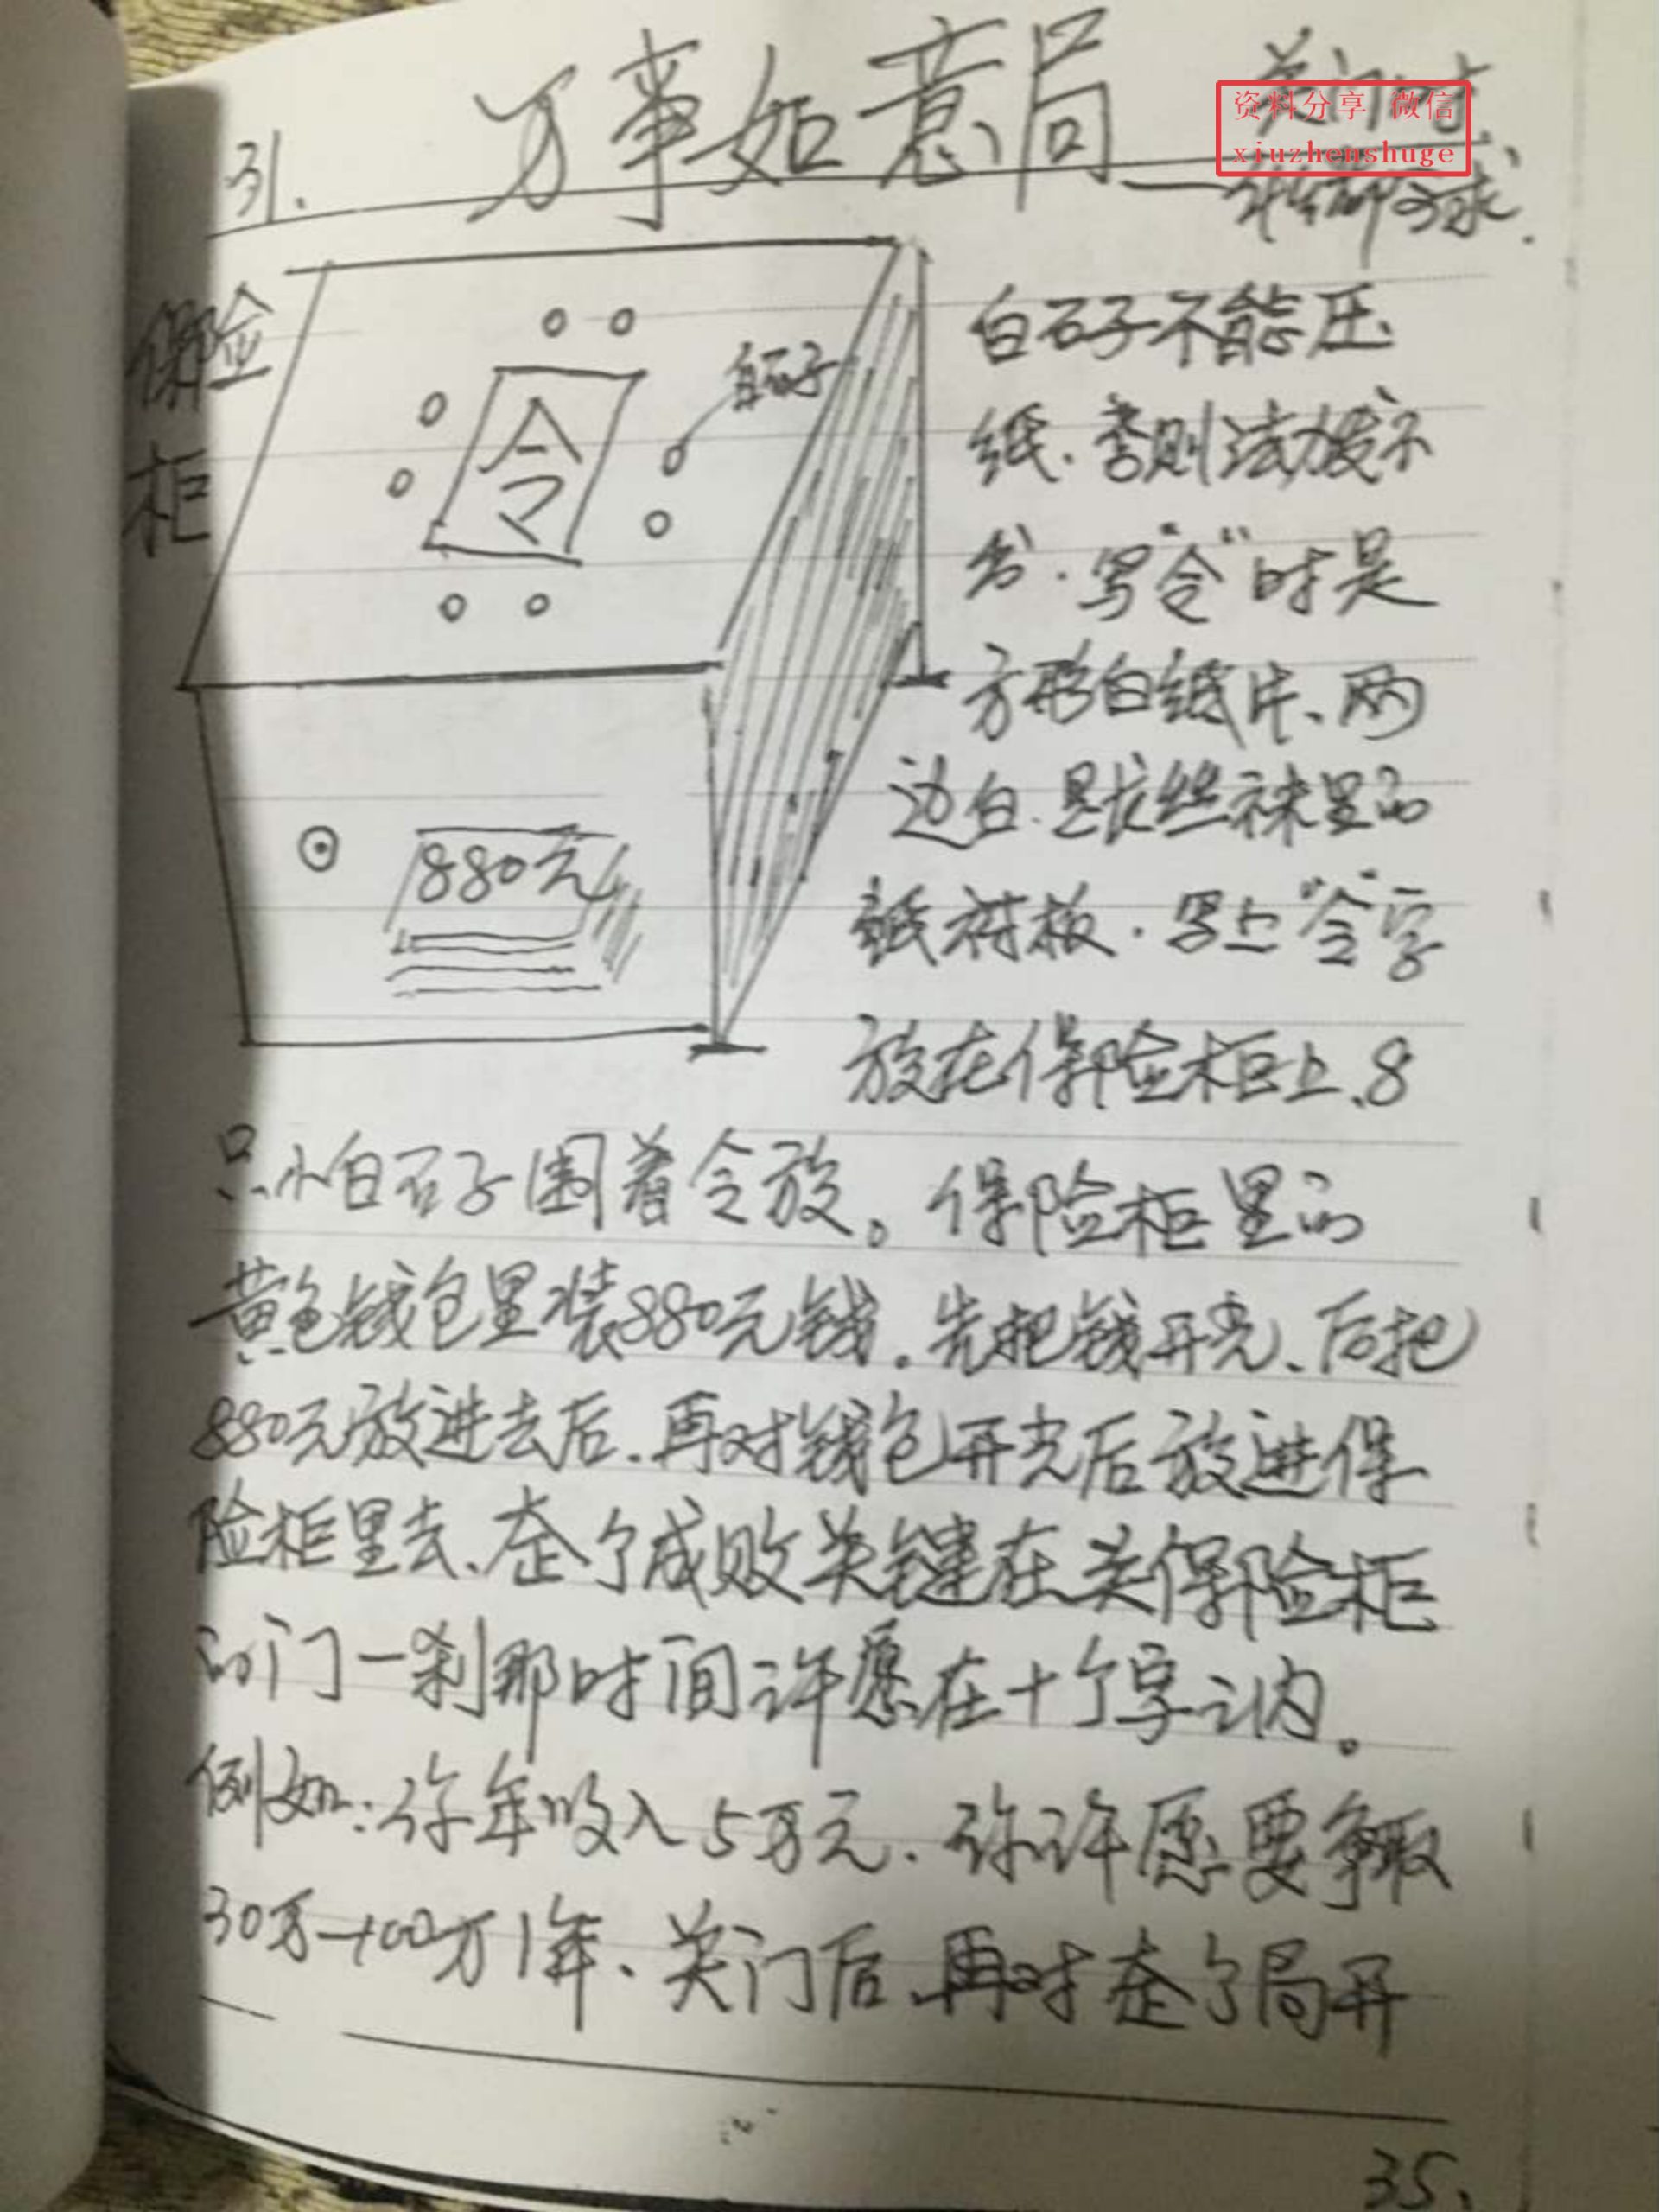 31. 万事如意局
资料分享 微信
xiuzhenshuge
保险
柜
令
白石子
880元
白石子不能压
纸.否则法力发不
出.写"令"时是
方形白纸片、两
边白.是长丝袜里的
纸衬板.写上"令"字
放在保险柜上、8
只小白石子围着令放。保险柜里的
黄色钱包里装880元钱.先把钱开光、后把
880元放进去后.再对钱包开光后放进保
险柜里去、整个成败关键在关保险柜
的门一刹那时间许愿在十个字之内。
例如:你年收入5万元.你许愿要争取
30万-100万1年、关门后、再对整个局开
35.